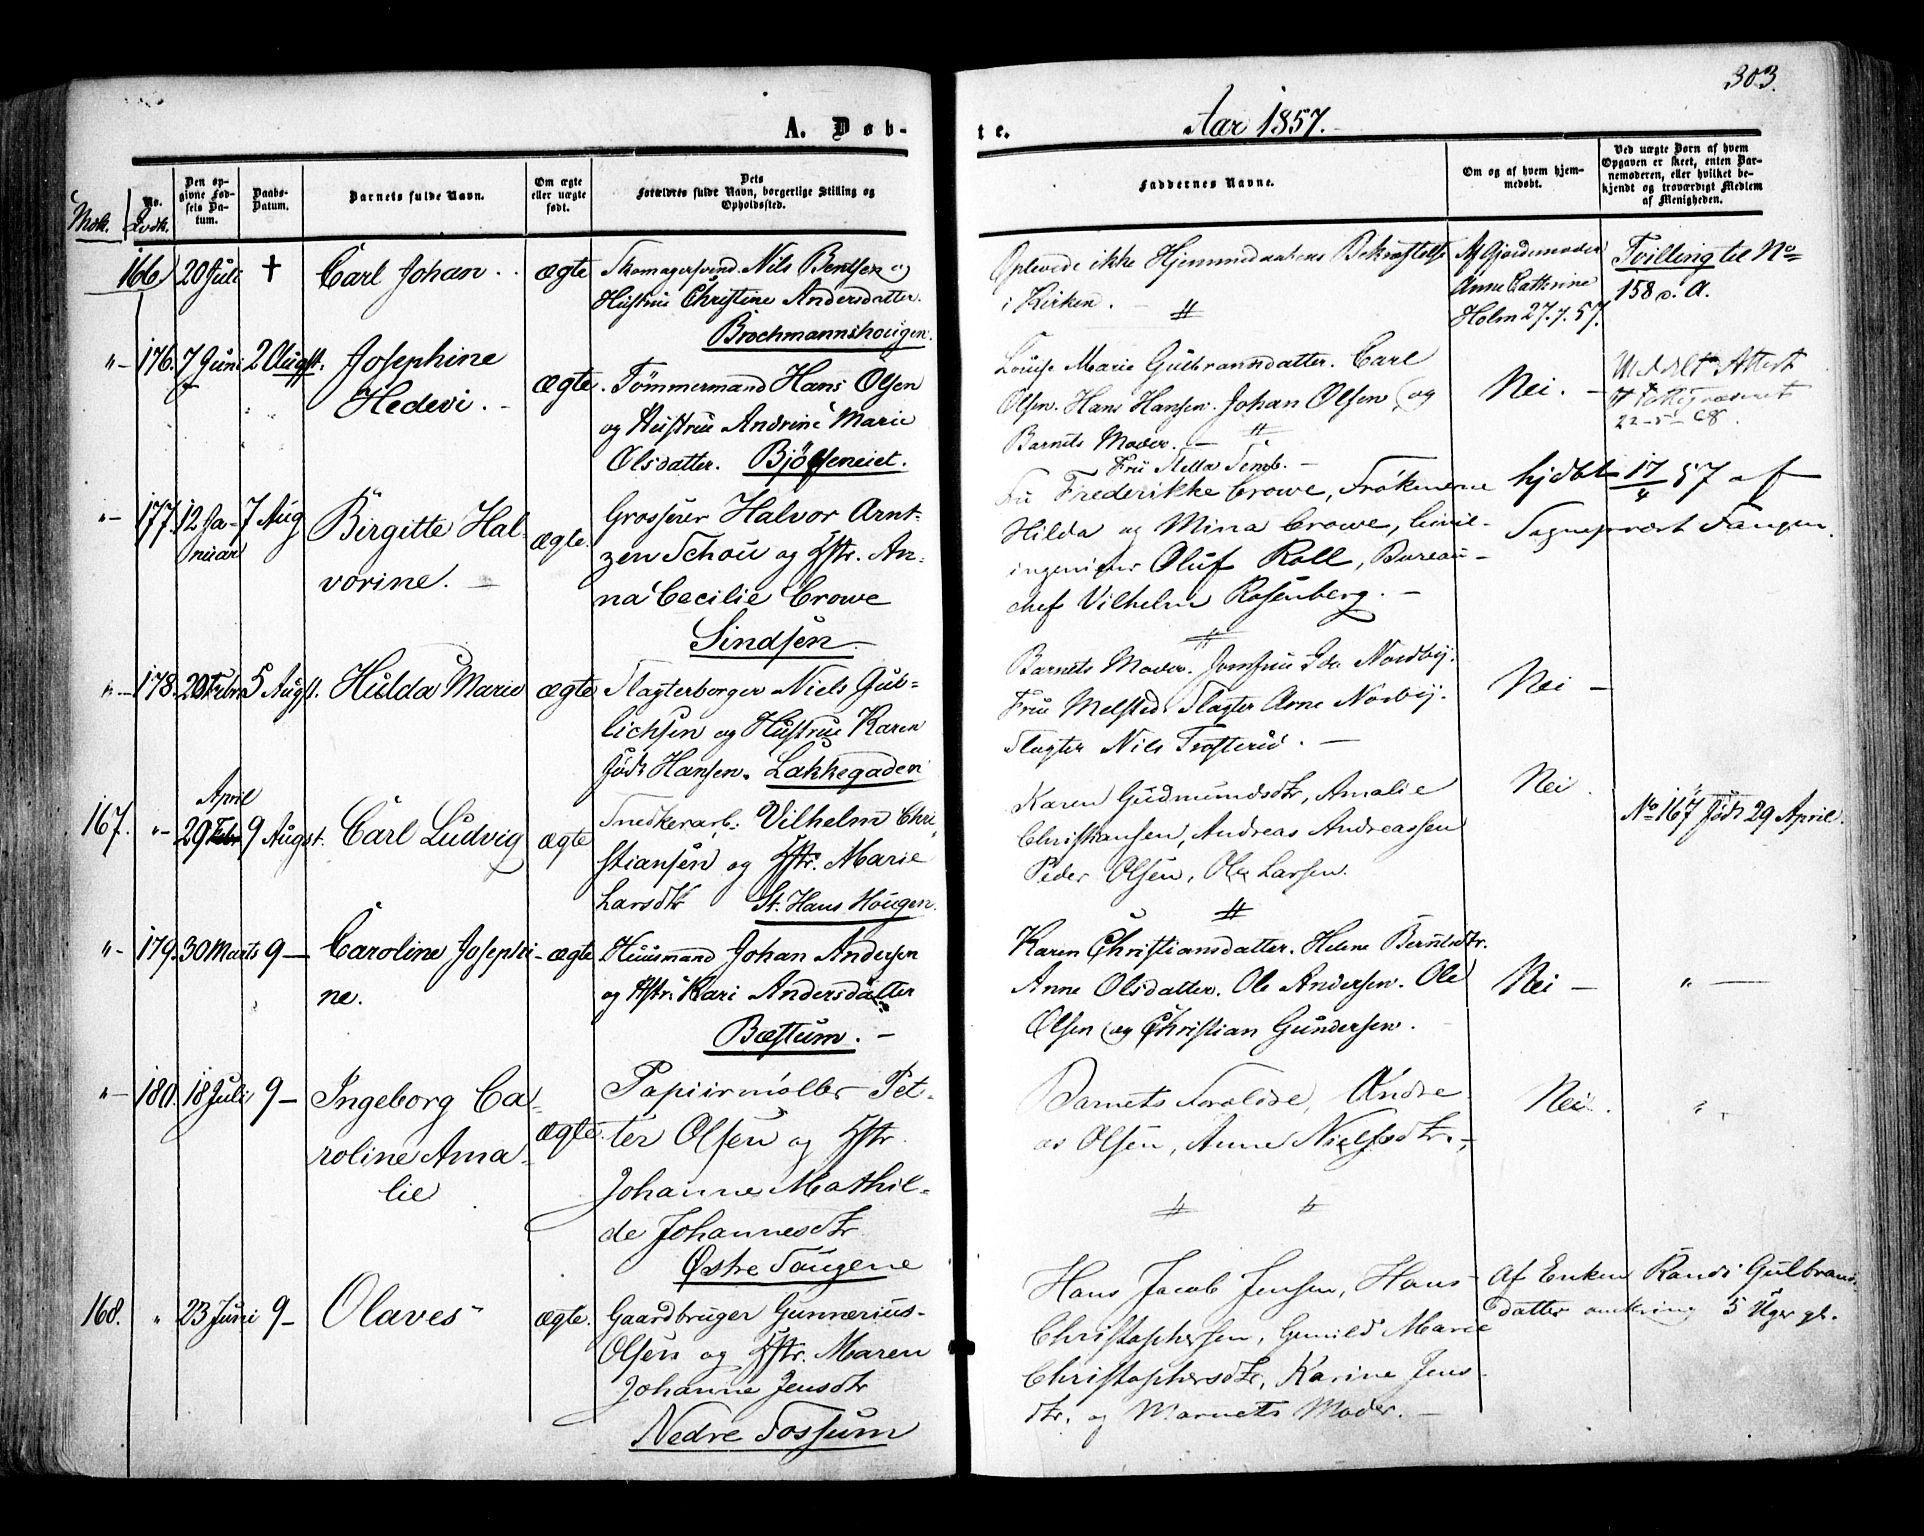 303.
A. Døb-
te.
Aar 1857.
Mdk.
No.
Qvdk.
Den op-
givne Fød-
sels Da-
tum.
Daabs-
Datum.
Barnets fulde Navn.
Om ægte
eller uægte
født.
Dets
Forældres fulde Navn, borgerlige Stilling og
Opholdssted.
Faddernes Navne.
Om og af hvem hjem-
medøbt.
Ved uægte Børn af hvem
Opgaven er skeet, enten Bar-
nemoderen, eller hvilket be-
kjendt og troværdigt Medlem
af Menigheden.
166 20 Juli + Carl Johan. ægte Skomagersvend Nils Bentsen og
Hustrue Christine Andersdatter.
Brochmannshougen.
Oplevede ikke Hjemmedaabens Bekræftelse
i Kirken.
Af Gjordemoder
Anne Cathrine
Holm 27.7.57.
Tvilling til No
158 v. A.
"- 176. 7 Juni 2 Augst. Josephine
Hedevi.
ægte. Tømmermand Hans Olsen
og Hustrue Andrine Marie
Olsdatter. Bjølseneiet.
Louise Marie Gulbransdatter. Carl
Olsen. Hans Hansen. Johan Olsen og
Barnets Moder.
Nei.
Attest
22-5-68.
"- 177. 12 Ja-
nuar
7 Aug Birgitte Hal-
vorine.
ægte. Grosserer Halvor Arnt-
zen Schou og Hstr. An-
na Cecilie Crowe
Sindsen
Fru Frederikke Crowe, Frøknerne
Hilda og Mina Crowe, Civil-
ingeniør Oluf Roll, Bureau-
chef Vilhelm Rosenberg.
hjdbt 17/4 57 af
Sogneprest Fangen.
"- 178. 20 Febr 5 Augst. Hulda Marie ægte Slagterborger Niels Gul-
lichsen og Hustrue Karen
født Hansen. Lakkegaden
Barnets Moder. Jomfrue Ida Nordby.
Frue Melsted. Slagter Arne Norby.
Slagter Nils Trosterud.
Nei
167. "- April
29 Febr 9 Augst. Carl Ludvig ægte Snedkerarb: Vilhelm Chri-
stiansen og Hstr. Marie
Larsdtr St. Hans Hougen.
Karen Gudmundsdtr, Amalie
Christiansen, Andreas Andreassen
Peder Olsen, Ole Larsen.
Nei.
No 167 født 29 April.
"- 179. 30 Marts 9 - Caroline Josephi-
ne.
ægte Huusmand Johan Andersen
og Hstr. Kari Andersdatter
Bæstum.
Karen Christiansdatter. Helene Berntsdtr.
Anne Olsdatter. Ole Andersen. Ole
Olsen og Christian Gundersen.
Nei - "-
"- 180. 18 Juli 9 - Ingeborg Ca-
roline Ama-
lie
ægte. Papiirmøller Pet-
ter Olsen og Hstr.
Johanne Mathil-
de Johannesdtr
Østre Taugene
Barnets Foreldre, Andre-
as Olsen, Anne Nielsdtr.
Nei. "
168. " 23 Juni 9 - Olaves ægte. Gaardbruger Gunnerius
Olsen og Hstr. Maren
Johanne Jensdtr
Nedre Fossum
Hans Jacob Jensen, Hans
Christophersen, Gunild Marie
Christophersdtr, Karine Jens-
dtr. og Barnets Moder.
Af Enken Randi Gulbrans-
datter omkring 5 Uger gl.